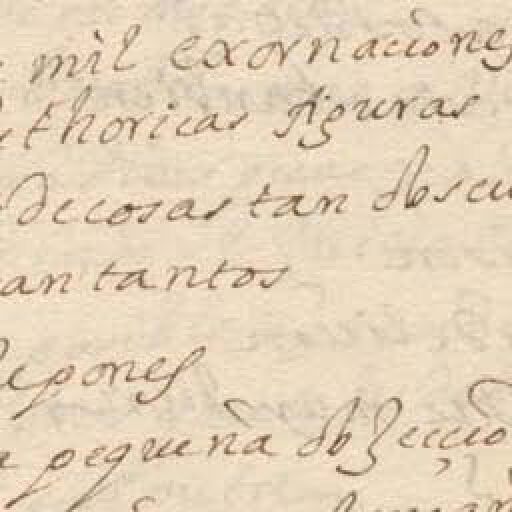 mil exornaciones
thoricas figuras
de cosas tan obscu
an tantos
pones
pequeña obzeccio